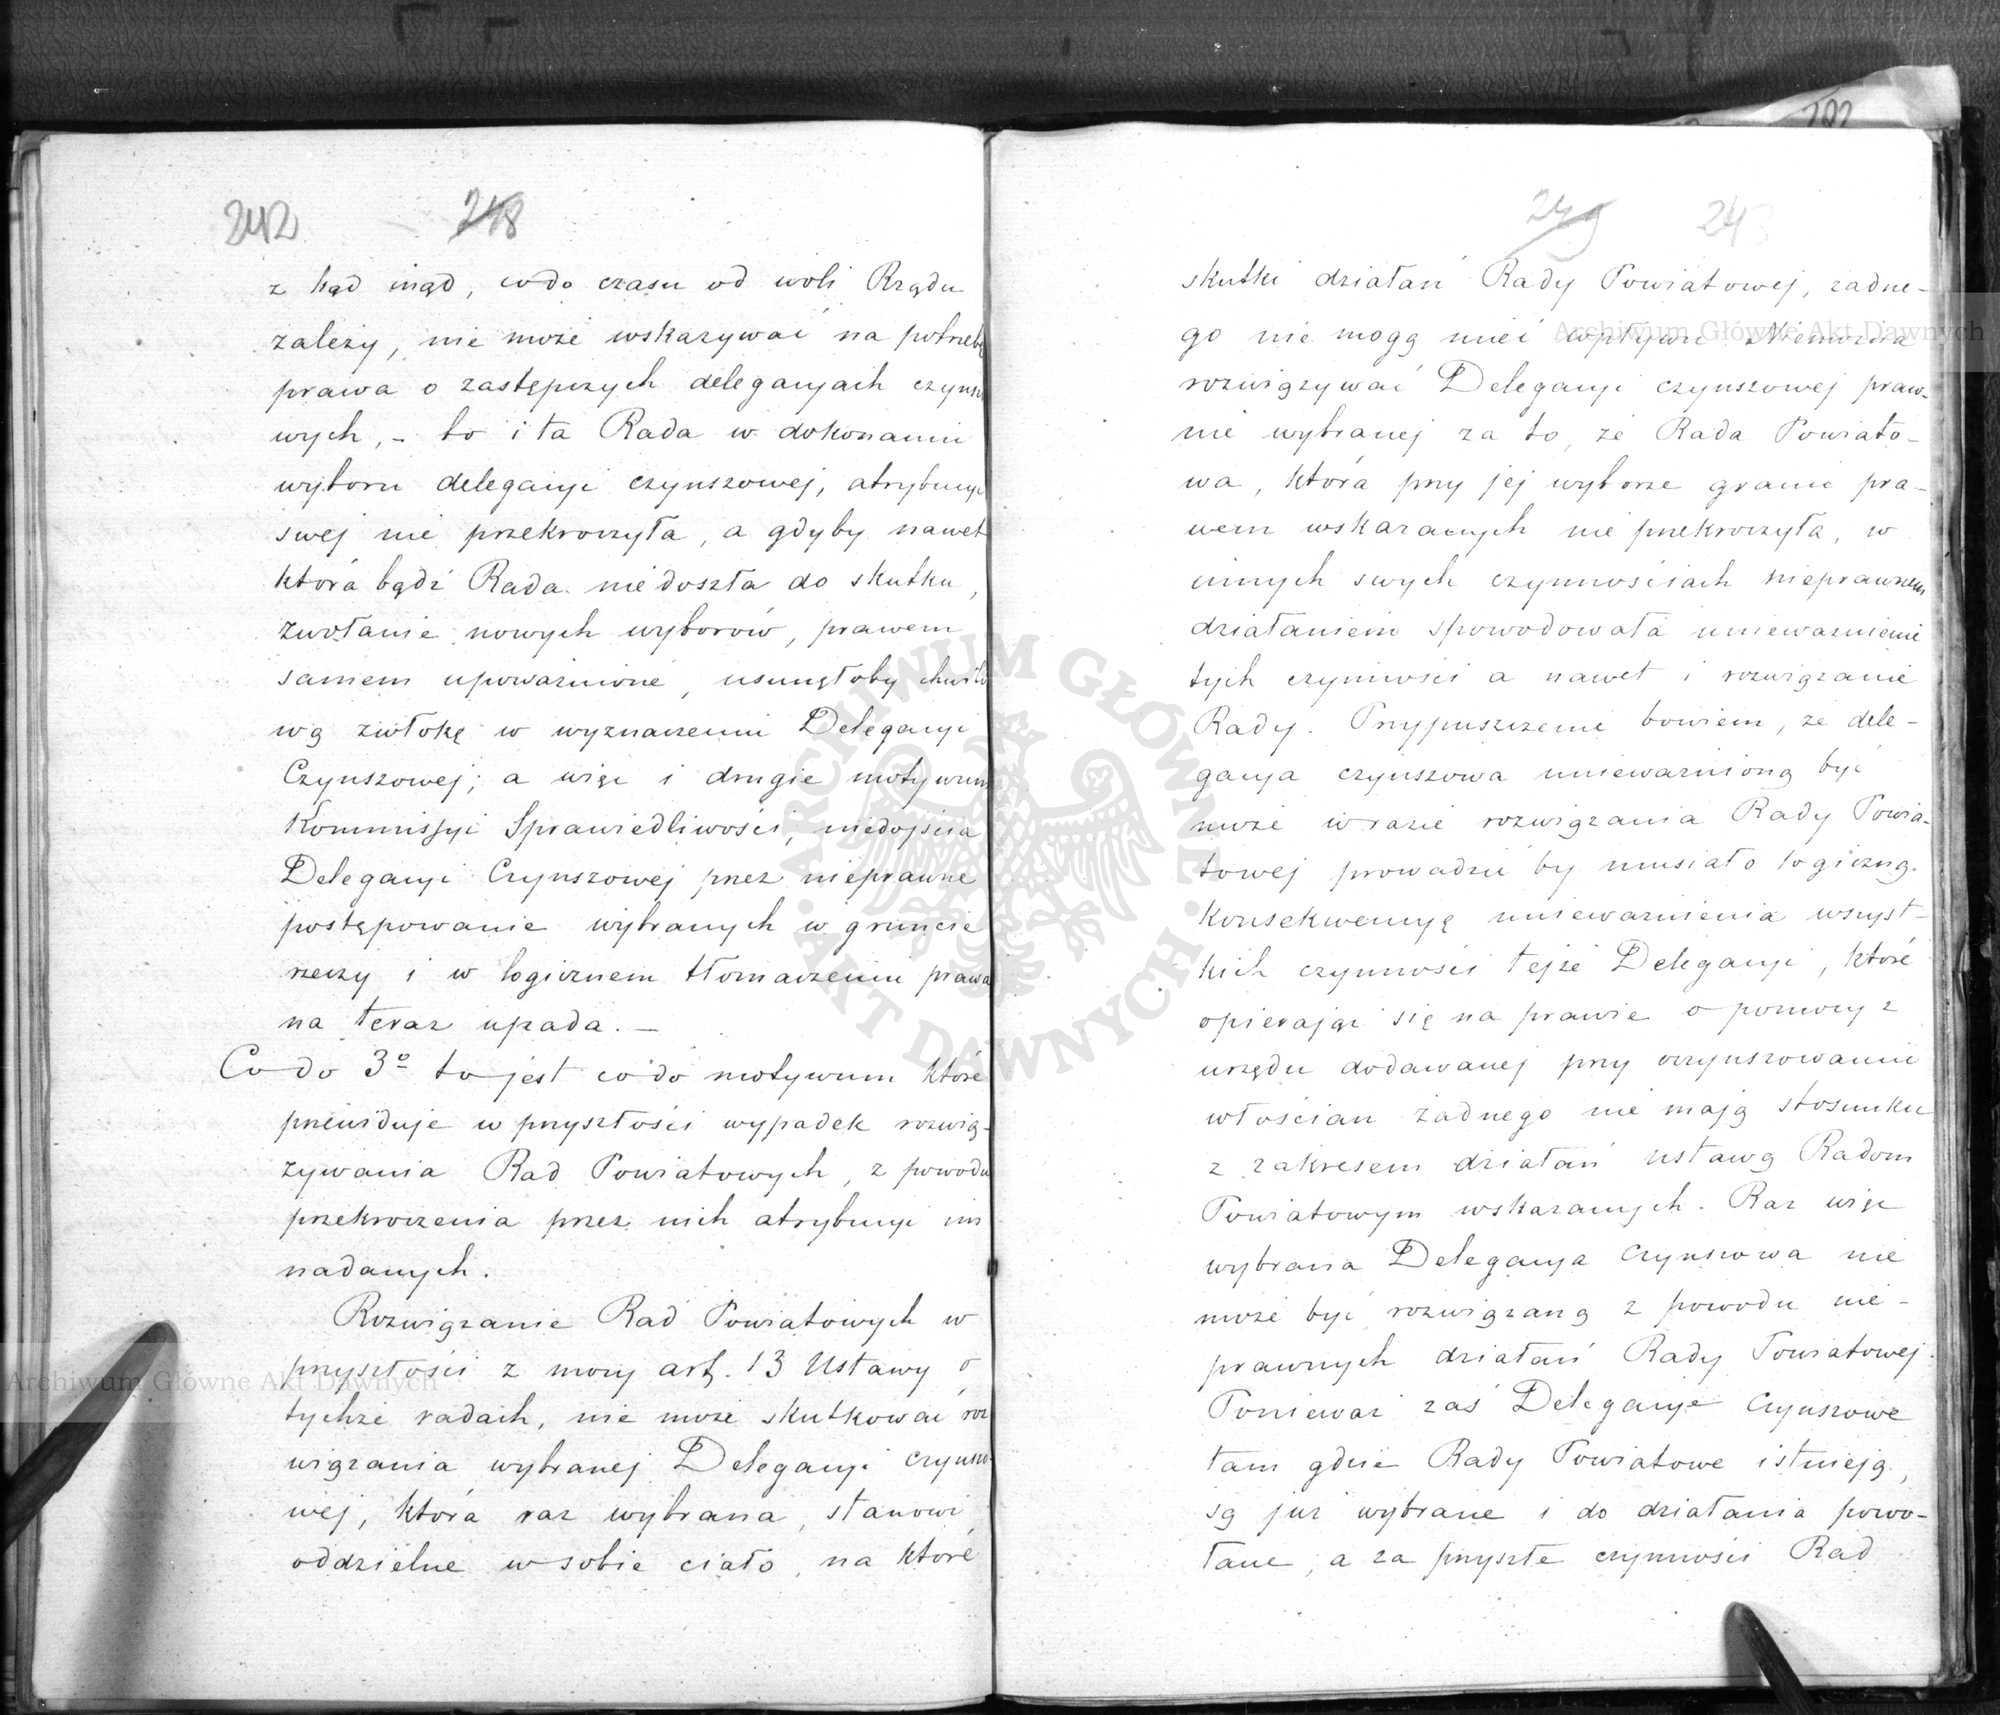 242 248
z kąd inąd, codo czasu od woli Rządu
zależy, nie może wskazywać na potrzebę
prawa o zastępczych delegacyach czynszo
wych, – to i ta Rada w dokonaniu
wyboru delegacyi czynszowej, atrybucyi
swej nie przekroczyła, a gdyby nawet
która bądź Rada niedoszła do skutku,
zwołanie nowych wyborów, prawem
samem upoważnione, usunęłoby chwilo
wą zwłokę w wyznaczeniu Delegacyi
Czynszowej; a więc i drugie motywum
Kommissyi Sprawiedliwości, niedojścia
Delegacyi Czynszowej przez nieprawne
postępowanie wybranych w gruncie
rzeczy i w logicznem tłomaczeniu prawa
na teraz upada. –
Co do 3º to jest co do motywum które
przewiduje w przyszłości wypadek rozwią-
zywania Rad Powiatowych, z powodu
przekroczenia przez nich atrybucyi im
nadanych.
Rozwiązanie Rad Powiatowych w
przyszłości z mocy art. 13 Ustawy o
tychże radach, nie może skutkować roz
wiązania wybranej Delegacyi czynszo-
wej, która raz wybrana, stanowi
oddzielne w sobie ciało, na które
249 243
skutki działań Rady Powiatowej, żadne-
go nie mogą mieć wpływu. Niemożna
rozwiązywać Delegacyi czynszowej praw-
nie wybranej za to, że Rada Powiato-
wa, która przy jej wyborze granic pra-
wem wskazanych nie przekroczyła, w
innych swych czynnościach nieprawnem
działaniem spowodowała unieważnienie
tych czynności a nawet i rozwiązanie
Rady. Przypuszczenie bowiem, że dele-
gacya czynszowa unieważnioną być
może w razie rozwiązania Rady Powia-
towej prowadzić by musiało logiczną
konsekwencyę unieważnienia wszyst-
kich czynności tejże Delegacyi, które
opierając się na prawie o pomocy z
urzędu dodawanej przy oczynszowaniu
włościan żadnego nie mają stosunku
z zakresem działań ustawą Radom
Powiatowym wskazanych. Raz więc
wybrana Delegacya Czynszowa nie
może być rozwiązaną z powodu nie-
prawnych działań Rady Powiatowej.
Ponieważ zaś Delegacye Czynszowe
tam gdzie Rady Powiatowe istnieją,
są już wybrane i do działania powo-
łane, a za przyszłe czynności Rad
Archiwum Główne Akt Dawnych
Archiwum Główne Akt Dawnych
ARCHIWUM GŁÓWNE AKT DAWNYCH